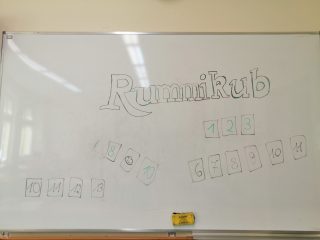 Rummikub
1 2 3
8 9 10
6 7 8 9 10 11
10 11 12 13